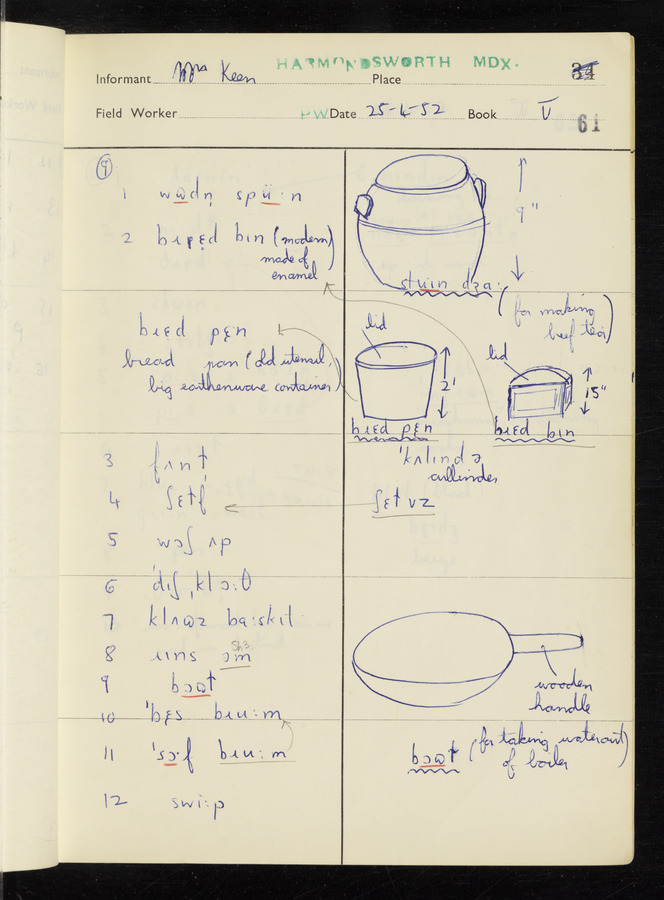 HARMONDSWORTH MDX.
Informant Mrs Keen Place 34
Field Worker PW Date 25-4-52 Book V
61
9
1 wɒdn̩ spüːn
2 bɹɛd bin (modern)
made of
enamel
9"
stüin dʒaː
(for making
beef tea)
bɹɛd pɛn
bread pan (old utensil,
big earthenware container)
lid
2'
bɹɛd pɛn
lid
15"
bɹɛd bɪn
'kʌlində
cullinder
3 fɹnt
4 ʃɛtf
ʃɛt vz
5 wɔʃ ʌp
6 'diʃ ˌklɔːθ
7 klʌʊz baːskit
8 ɹins əm
9 bɔʊt
10 'bɛs bɹuːm
11 'sɔˑf bɹuːm
12 swiːp
wooden
handle
bɔʊt (for taking water out)
of boiler